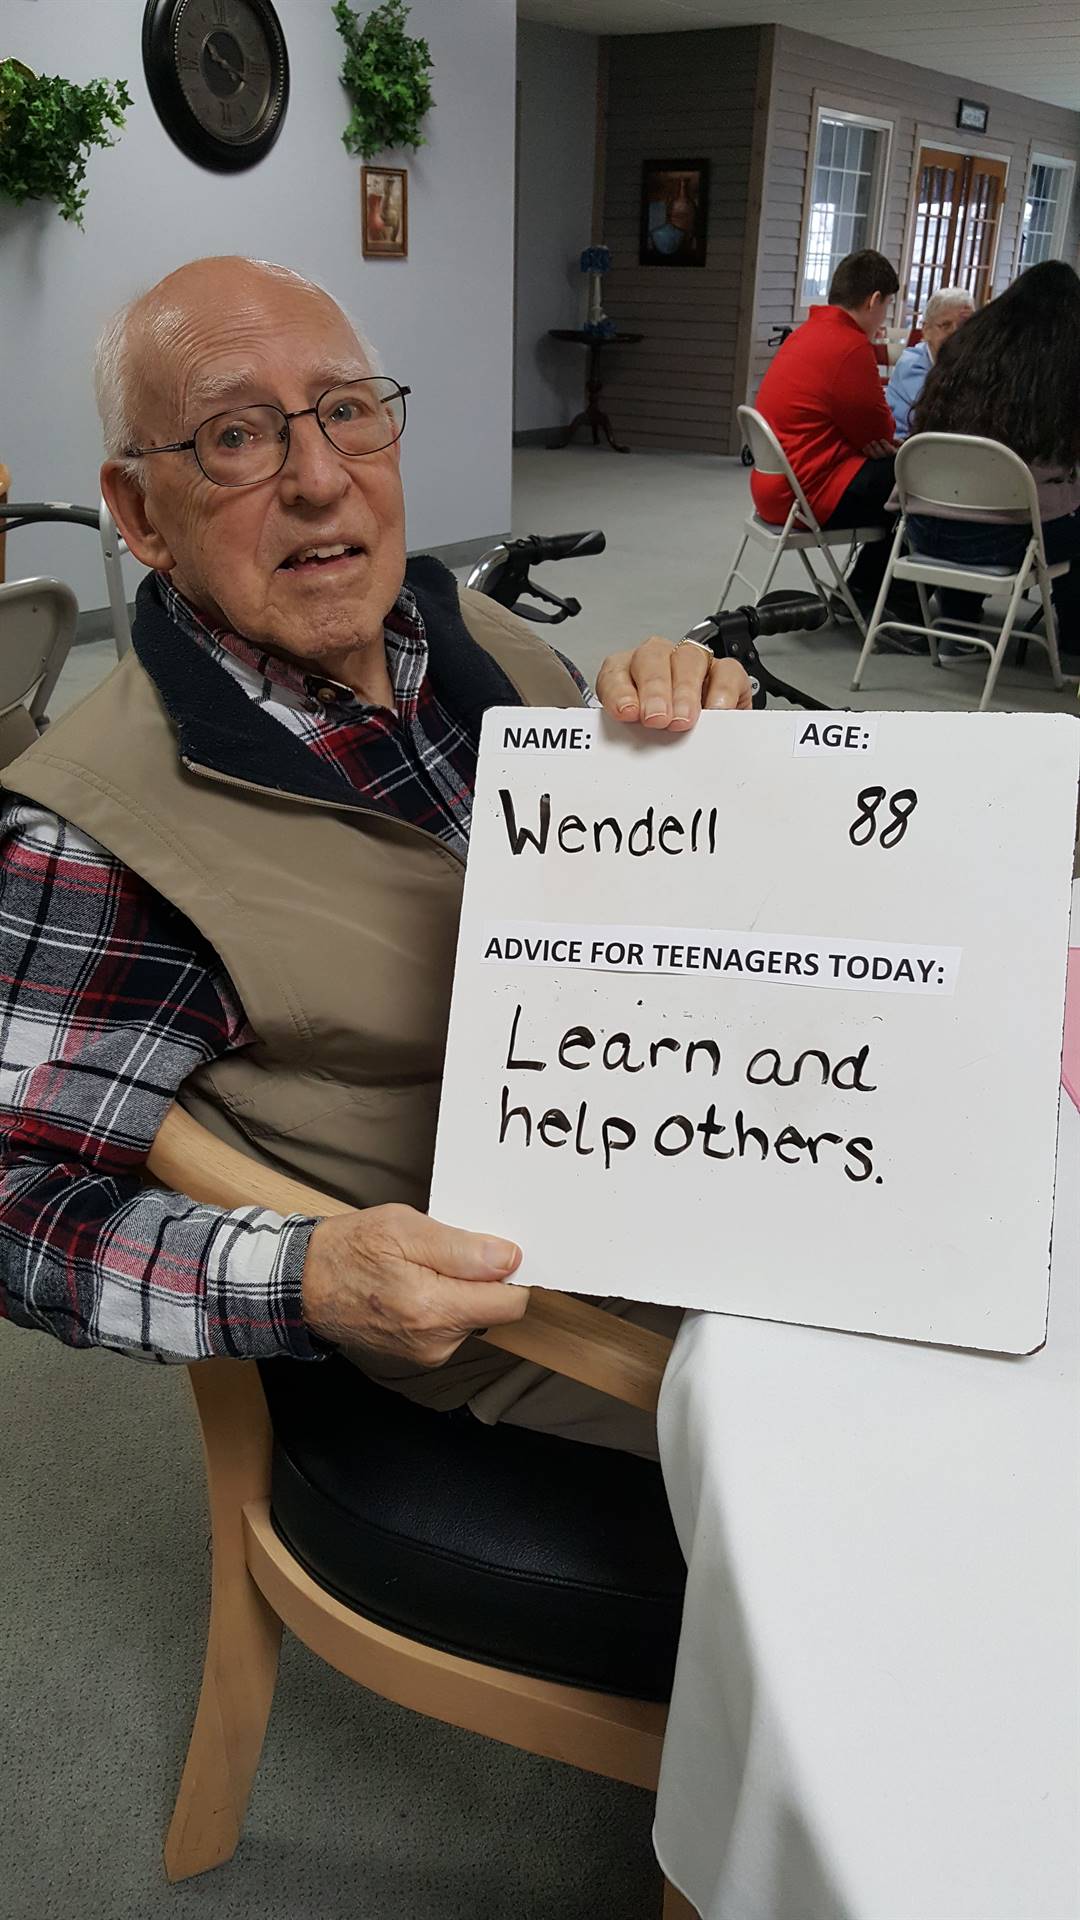 NAME: AGE:
Wendell 88
ADVICE FOR TEENAGERS TODAY:
Learn and
help others.